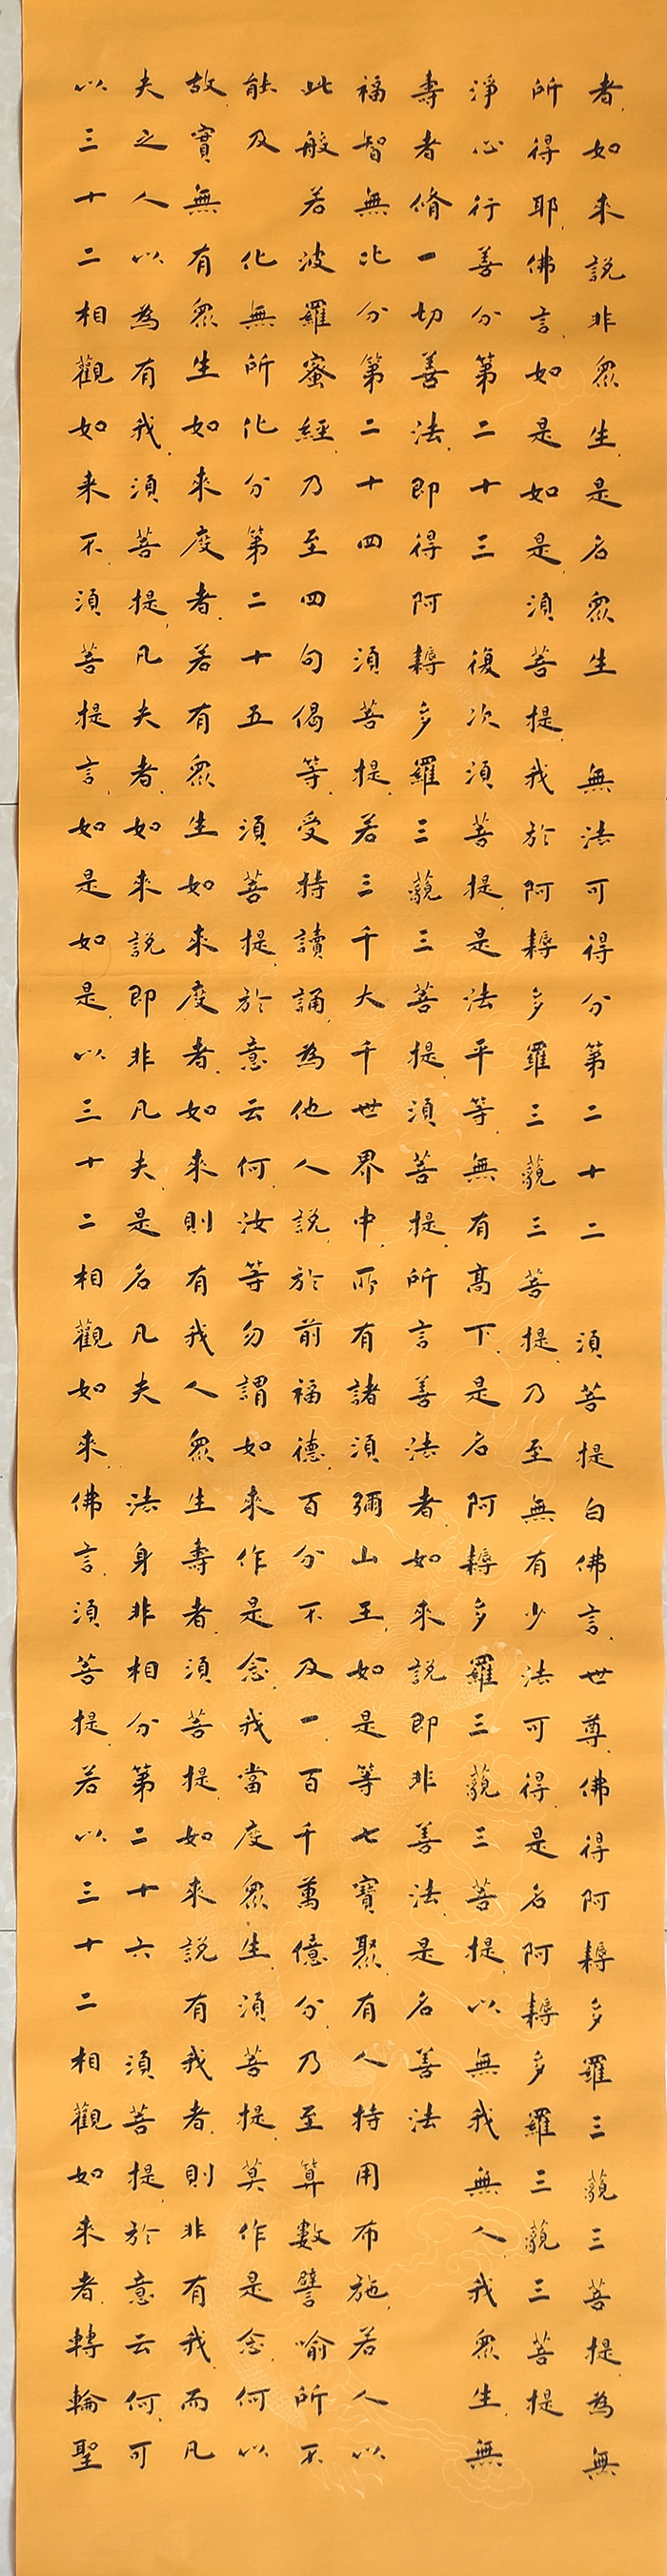 者如來說非眾生是名眾生 無法可得分第二十二 須菩提白佛言世尊佛得阿耨多羅三藐三菩提為無
所得耶佛言如是如是須菩提我於阿耨多羅三藐三菩提乃至無有少法可得是名阿耨多羅三藐三菩提
淨心行善分第二十三 復次須菩提是法平等無有高下是名阿耨多羅三藐三菩提以無我無人我眾生無
壽者脩一切善法即得阿耨多羅三藐三菩提須菩提所言善法者如來說即非善法是名善法
福智無比分第二十四 須菩提若三千大千世界中所有諸須彌山王如是等七寶聚有人持用布施若人以
此般若波羅蜜經乃至四句偈等受持讀誦為他人說於前福德百分不及一百千萬億分乃至算數譬喻所不
能及 化無所化分第二十五 須菩提於意云何汝等勿謂如來作是念我當度眾生須菩提莫作是念何以
故實無有眾生如來度者若有眾生如來度者如來則有我人眾生壽者須菩提如來說有我者則非有我而凡
夫之人以為有我須菩提凡夫者如來說即非凡夫是名凡夫 法身非相分第二十六 須菩提於意云何可
以三十二相觀如來不須菩提言如是如是以三十二相觀如來佛言須菩提若以三十二相觀如來者轉輪聖